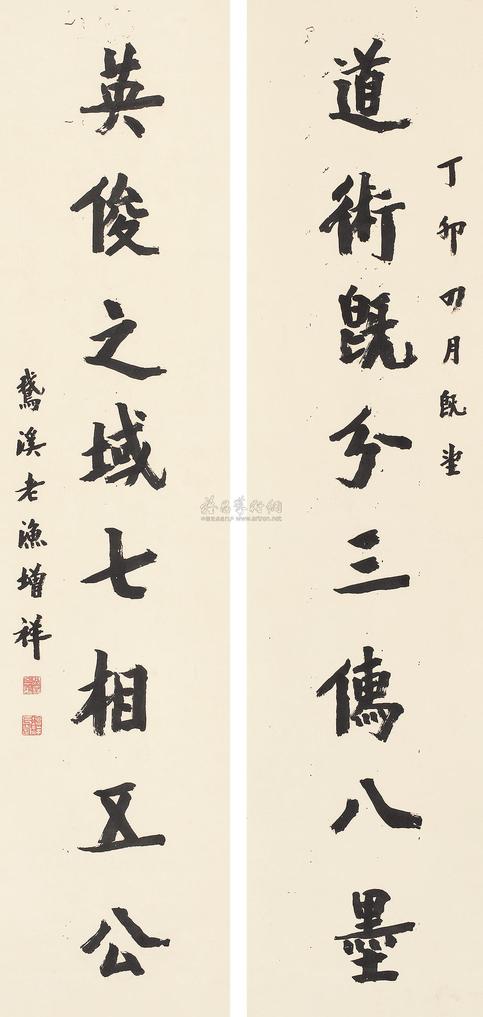 丁卯四月既望
道術既分三儒八墨
英俊之域七相五公
鵞溪老漁增祥
雅昌藝術網
www.artron.net